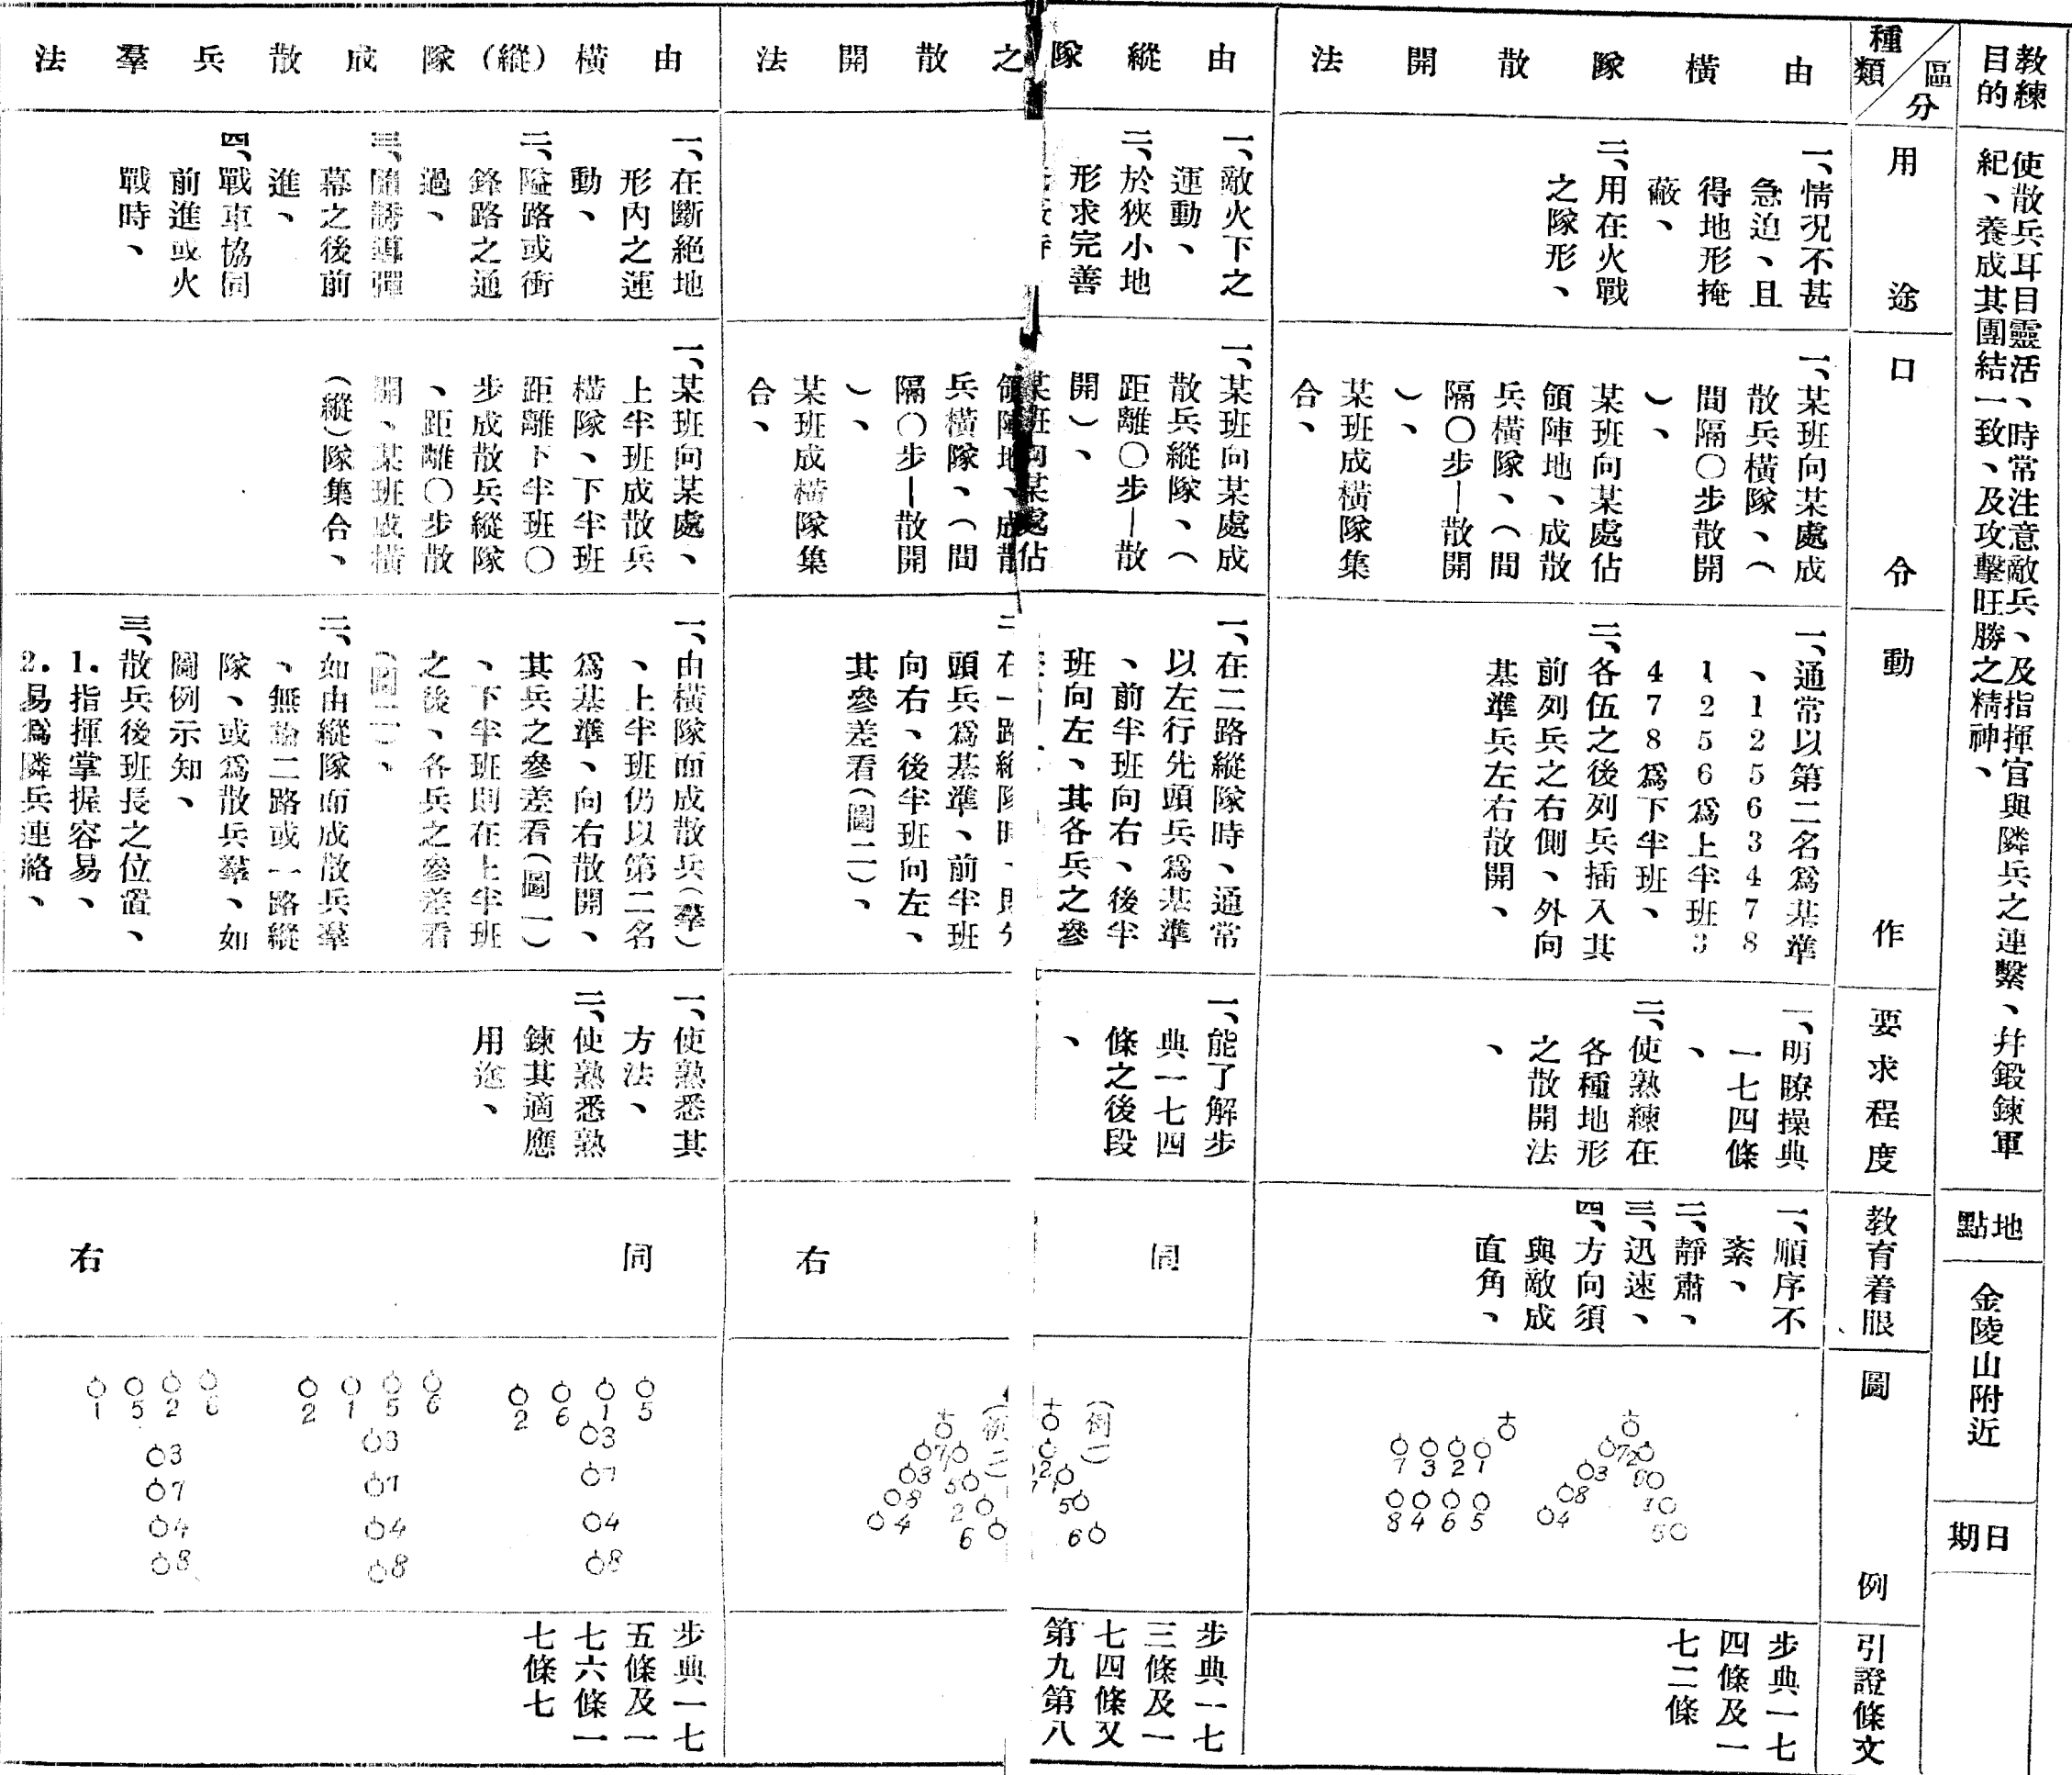 教練
目的
使散兵耳目靈活、時常注意敵兵、及指揮官與隣兵之連繫、幷鍛鍊軍
紀、養成其團結一致、及攻擊旺勝之精神、
地點
金陵山附近
日期
區分
種類
用途
口令
動作
要求程度
教育着眼
圖例
引證條文
由橫隊散開法
一、情況不甚
急迫、且
得地形掩
蔽、
二、用在火戰
之隊形、
一、某班向某處成
散兵橫隊、(
間隔〇步散開
)、
某班向某處佔
領陣地、成散
兵橫隊、(間
隔〇步—散開
)、
某班成橫隊集
合、
一、通常以第二名爲基準
、12563478
1256爲上半班3
478爲下半班、
二、各伍之後列兵插入其
前列兵之右側、外向
基準兵左右散開、
一、明瞭操典
一七四條
、
二、使熟練在
各種地形
之散開法
、
一、順序不
紊、
二、靜肅、
三、迅速、
四、方向須
與敵成
直角、
7 3 2 1
8 4 6 5
步典一七
四條及一
七二條
由縱隊之散開法
一、敵火下之
運動、
二、於狹小地
形求完善
一、某班向某處成
散兵縱隊、(
距離〇步—散
開)、
某班向某處佔
領陣地、成散
兵橫隊、(間
隔〇步—散開
)、
某班成橫隊集
合、
一、在二路縱隊時、通常
以左行先頭兵爲基準
、前半班向右、後半
班向左、其各兵之參
二、在一路縱隊時
頭兵爲基準、前半班
向右、後半班向左、
其參差看(圖二)、
一、能了解步
典一七四
條之後段
、
同右
(例一)
2
5
6
(例二)
7 1
3 5
8 2
4 6
步典一七
三條及一
七四條又
第九第八
由橫(縱)隊成散兵羣法
一、在斷絕地
形內之運
動、
二、隘路或衝
鋒路之通
過、
三、隨誘導彈
幕之後前
進、
四、戰車協同
前進或火
戰時、
一、某班向某處、
上半班成散兵
橫隊、下半班
距離下半班〇
步成散兵縱隊
、距離〇步散
開、某班成橫
(縱)隊集合、
一、由橫隊而成散兵(羣)
、上半班仍以第二名
爲基準、向右散開、
其兵之參差看(圖一)
、下半班則在上半班
之後、各兵之參差看
(圖二)、
二、如由縱隊而成散兵羣
、無論二路或一路縱
隊、或爲散兵羣、如
圖例示知、
三、散兵後班長之位置、
1.指揮掌握容易、
2.易爲隣兵連絡、
一、使熟悉其
方法、
二、使熟悉熟
鍊其適應
用途、
同右
2 6 1 5
3
7
4
8
2 1 5 6
3
7
4
8
1 5 2 6
3
7
4
8
步典一七
五條及一
七六條一
七條七